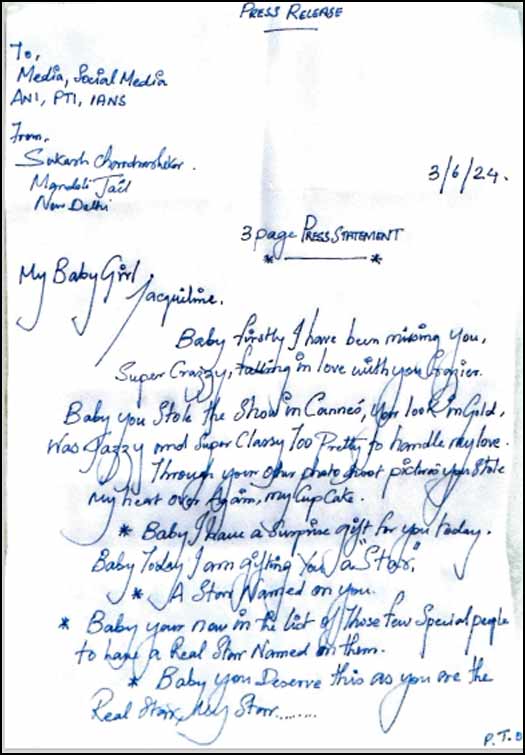 PRESS RELEASE
To,
Media, Social Media
ANI, PTI, IANS
From,
Sukash Chandrashekar.
Mandoli Jail
New Delhi
3/6/24.
3 page PRESS STATEMENT
My Baby Girl
Jacquiline.
Baby firstly I have been missing you,
Super Crazzy, falling in love with you Crazier.
Baby you Stole the Show in Cannes, your look in Gold,
Was Jazzy and Super Classy Too Pretty to handle my love.
Through your photo shoot pictures you Stole
My heart over Again, my CupCake.
* Baby I have a Surprise gift for you today.
Baby Today I am gifting You a "Starr,"
* A Starr Named on you.
* Baby your now in the list of those few Special people
to have a Real Starr Named on them.
* Baby you Deserve this as you are the
Real Starr, My Starr........
P.T.O